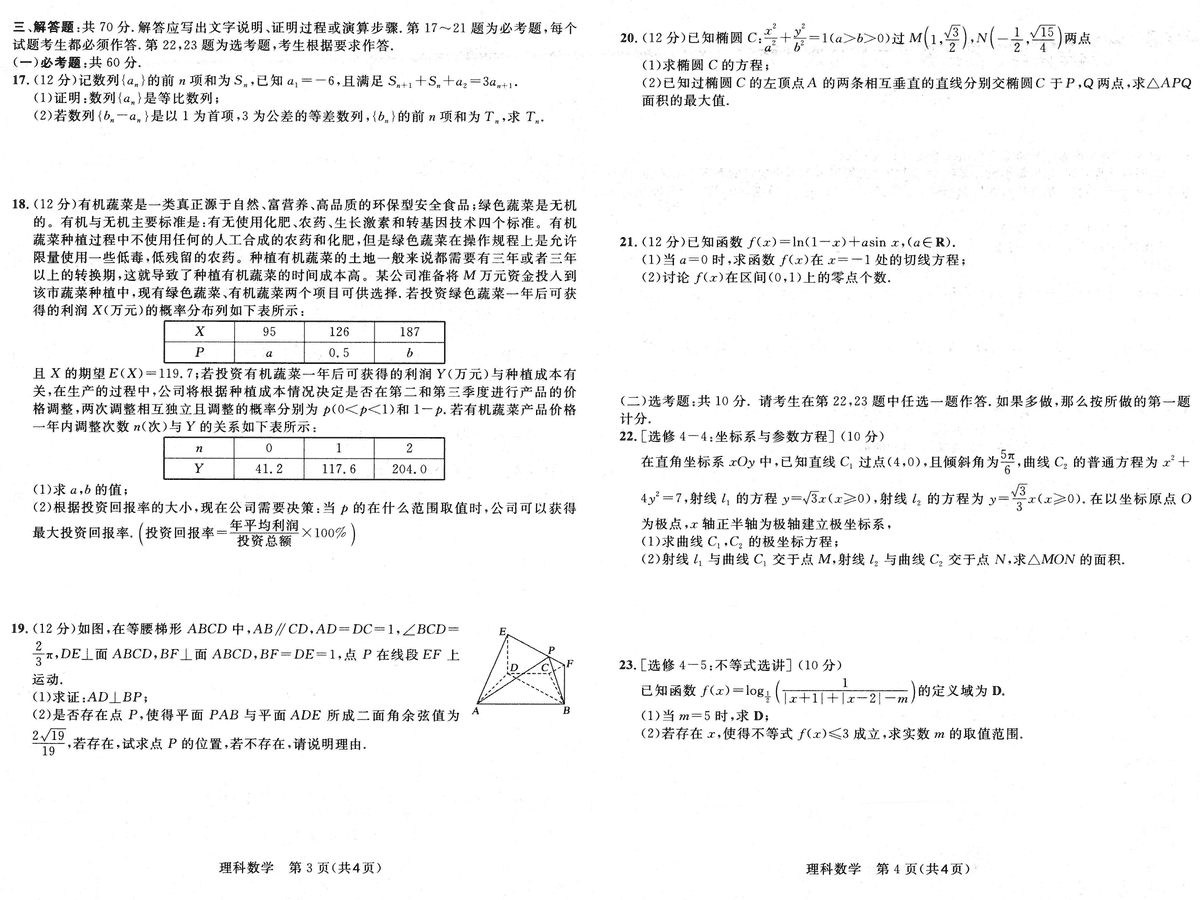 三、解答题:共 70 分.解答应写出文字说明、证明过程或演算步骤.第 17~21 题为必考题,每个
试题考生都必须作答.第 22,23 题为选考题,考生根据要求作答.
(一)必考题:共 60 分.
17.(12 分)记数列{aₙ}的前 n 项和为 Sₙ,已知 a₁=-6,且满足 Sₙ₊₁+Sₙ+a₂=3aₙ₊₁.
(1)证明:数列{aₙ}是等比数列;
(2)若数列{bₙ-aₙ}是以 1 为首项,3 为公差的等差数列,{bₙ}的前 n 项和为 Tₙ,求 Tₙ.
18.(12 分)有机蔬菜是一类真正源于自然、富营养、高品质的环保型安全食品;绿色蔬菜是无机
的。有机与无机主要标准是:有无使用化肥、农药、生长激素和转基因技术四个标准。有机
蔬菜种植过程中不使用任何的人工合成的农药和化肥,但是绿色蔬菜在操作规程上是允许
限量使用一些低毒,低残留的农药。种植有机蔬菜的土地一般来说都需要有三年或者三年
以上的转换期,这就导致了种植有机蔬菜的时间成本高。某公司准备将 M 万元资金投入到
该市蔬菜种植中,现有绿色蔬菜、有机蔬菜两个项目可供选择.若投资绿色蔬菜一年后可获
得的利润 X(万元)的概率分布列如下表所示:
X 95 126 187
P a 0.5 b
且 X 的期望 E(X)=119.7;若投资有机蔬菜一年后可获得的利润 Y(万元)与种植成本有
关,在生产的过程中,公司将根据种植成本情况决定是否在第二和第三季度进行产品的价
格调整,两次调整相互独立且调整的概率分别为 p(0<p<1)和 1-p.若有机蔬菜产品价格
一年内调整次数 n(次)与 Y 的关系如下表所示:
n 0 1 2
Y 41.2 117.6 204.0
(1)求 a,b 的值;
(2)根据投资回报率的大小,现在公司需要决策:当 p 的在什么范围取值时,公司可以获得
最大投资回报率.(投资回报率=年平均利润/投资总额×100%)
19.(12 分)如图,在等腰梯形 ABCD 中,AB∥CD,AD=DC=1,∠BCD=
2/3π,DE⊥面 ABCD,BF⊥面 ABCD,BF=DE=1,点 P 在线段 EF 上
运动.
(1)求证:AD⊥BP;
(2)是否存在点 P,使得平面 PAB 与平面 ADE 所成二面角余弦值为
2√19/19,若存在,试求点 P 的位置,若不存在,请说明理由.
E
P
F
D
C
A
B
理科数学 第 3 页(共4页)
20.(12 分)已知椭圆 C:x²/a²+y²/b²=1(a>b>0)过 M(1,√3/2),N(-1/2,√15/4)两点
(1)求椭圆 C 的方程;
(2)已知过椭圆 C 的左顶点 A 的两条相互垂直的直线分别交椭圆 C 于 P,Q 两点,求△APQ
面积的最大值.
21.(12 分)已知函数 f(x)=ln(1-x)+asin x,(a∈R).
(1)当 a=0 时,求函数 f(x)在 x=-1 处的切线方程;
(2)讨论 f(x)在区间(0,1)上的零点个数.
(二)选考题:共 10 分. 请考生在第 22,23 题中任选一题作答.如果多做,那么按所做的第一题
计分.
22.[选修 4-4:坐标系与参数方程](10 分)
在直角坐标系 xOy 中,已知直线 C₁ 过点(4,0),且倾斜角为5π/6,曲线 C₂ 的普通方程为 x²+
4y²=7,射线 l₁ 的方程 y=√3x(x≥0),射线 l₂ 的方程为 y=√3/3x(x≥0).在以坐标原点 O
为极点,x 轴正半轴为极轴建立极坐标系,
(1)求曲线 C₁,C₂ 的极坐标方程;
(2)射线 l₁ 与曲线 C₁ 交于点 M,射线 l₂ 与曲线 C₂ 交于点 N,求△MON 的面积.
23.[选修 4-5:不等式选讲](10 分)
已知函数 f(x)=log_{1/2}(1/(|x+1|+|x-2|-m))的定义域为 D.
(1)当 m=5 时,求 D;
(2)若存在 x,使得不等式 f(x)≤3 成立,求实数 m 的取值范围.
理科数学 第 4 页(共4页)